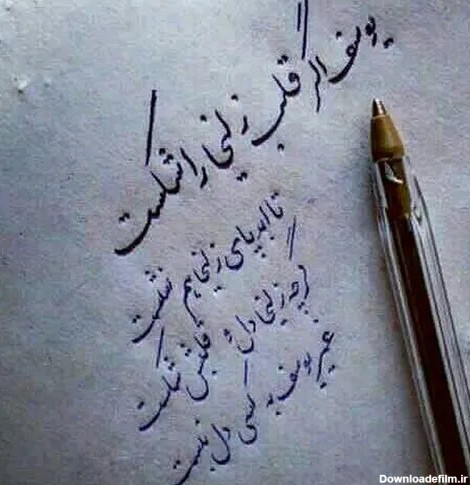 یوسف اگر قلب زلیخا را شکست
تا ابد پای زلیخا هم نشست
گرچه زلیخا دل قلبش شکست
غیر یوسف به کسی دل نبست
Downloadefilm.ir